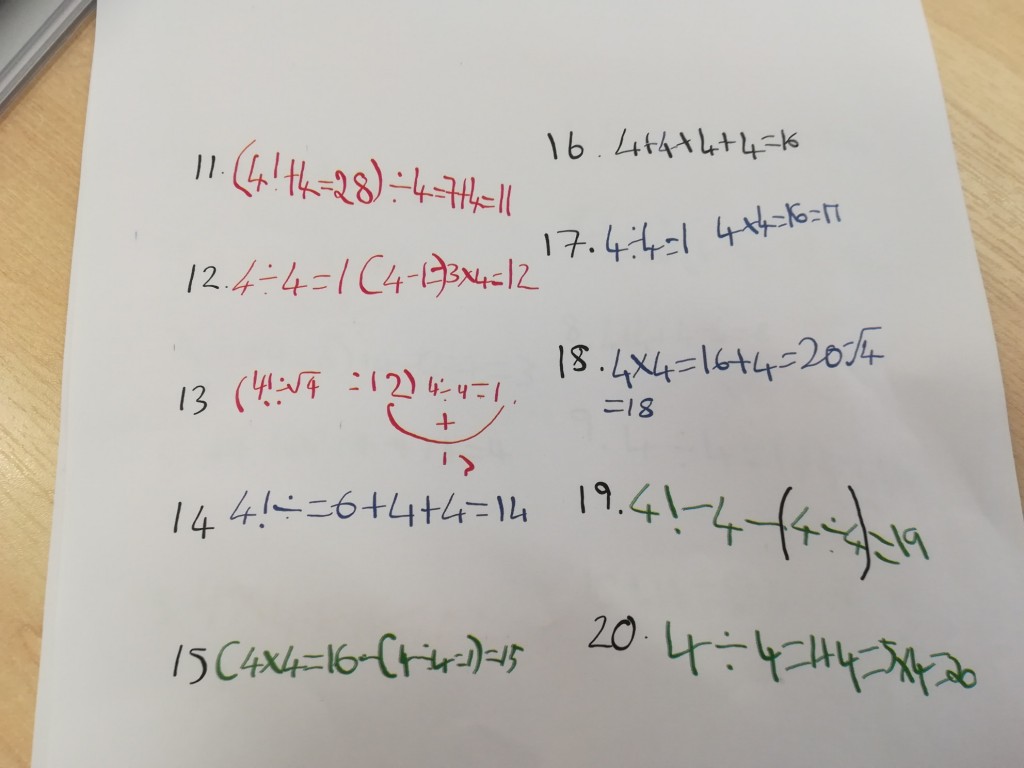 11. (4!+4=28)÷4=7+4=11
12. 4÷4=1 (4-1=)3x4=12
13 (4!÷√4 =12) 4÷4=1.
+
13
14 4!÷=6+4+4=14
15 (4x4=16-(4÷4=1)=15
16. 4+4+4+4=16
17. 4÷4=1 4x4=16=17
18. 4x4=16+4=20-√4
=18
19. 4!-4-(4÷4)=19
20. 4÷4=1+4=5x4=20